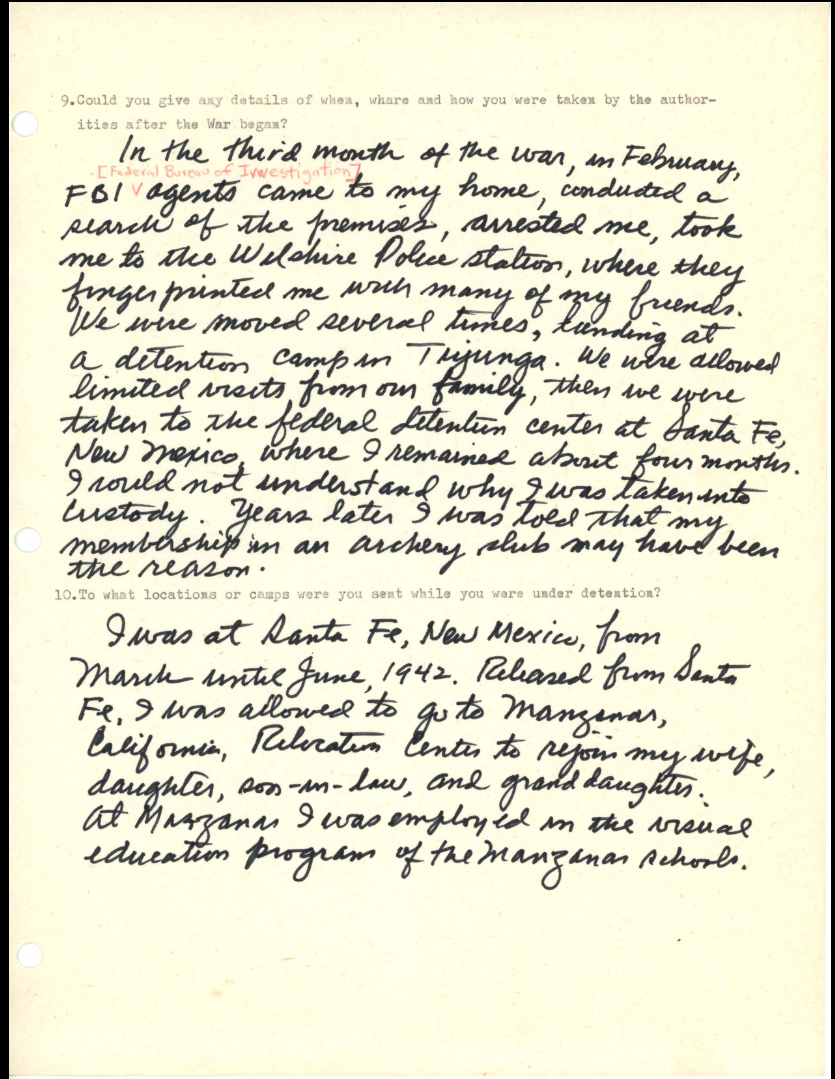 9.Could you give any details of when, whare and how you were taken by the author-
ities after the War began?
In the third month of the war, in February,
[Federal Bureau of Investigation]
FBI ∨ agents came to my home, conducted a
search of the premises, arrested me, took
me to the Wilshire Police station, where they
fingerprinted me with many of my friends.
We were moved several times, landing at
a detention camp in Tujunga. We were allowed
limited visits from our family, then we were
taken to the federal detention center at Santa Fe,
New Mexico, where I remained about four months.
I could not understand why I was taken into
custody. Years later I was told that my
membership in an archery club may have been
the reason.
10.To what locations or camps were you sent while you were under detention?
I was at Santa Fe, New Mexico, from
March until June, 1942. Released from Santa
Fe, I was allowed to go to Manzanar,
California, Relocation Center to rejoin my wife,
daughter, son-in-law, and granddaughter.
At Manzanar I was employed in the visual
education program of the Manzanar schools.